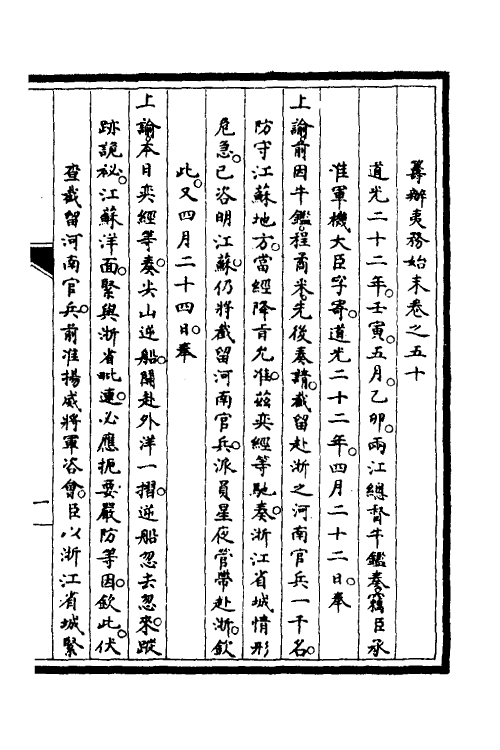 籌辦夷務始末卷之五十
道光二十二年。壬寅。五月。乙卯。兩江總督牛鑑奏。竊臣承
准軍機大臣字寄。道光二十二年。四月二十二日。奉
上諭。前因牛鑑。程矞采。先後奏請。截留赴浙之河南官兵一千名。
防守江蘇地方。當經降旨允准。茲奕經等馳奏。浙江省城情形
危急。已咨明江蘇。仍將截留河南官兵。派員星夜管帶赴浙。欽
此。又四月二十四日。奉
上諭。本日奕經等奏。尖山逆船。開赴外洋一摺。逆船忽去忽來。蹤
跡詭祕。江蘇洋面。緊與浙省毗連。必應扼要嚴防等因。欽此。伏
查截留河南官兵。前准揚威將軍咨會。臣以浙江省城緊
一